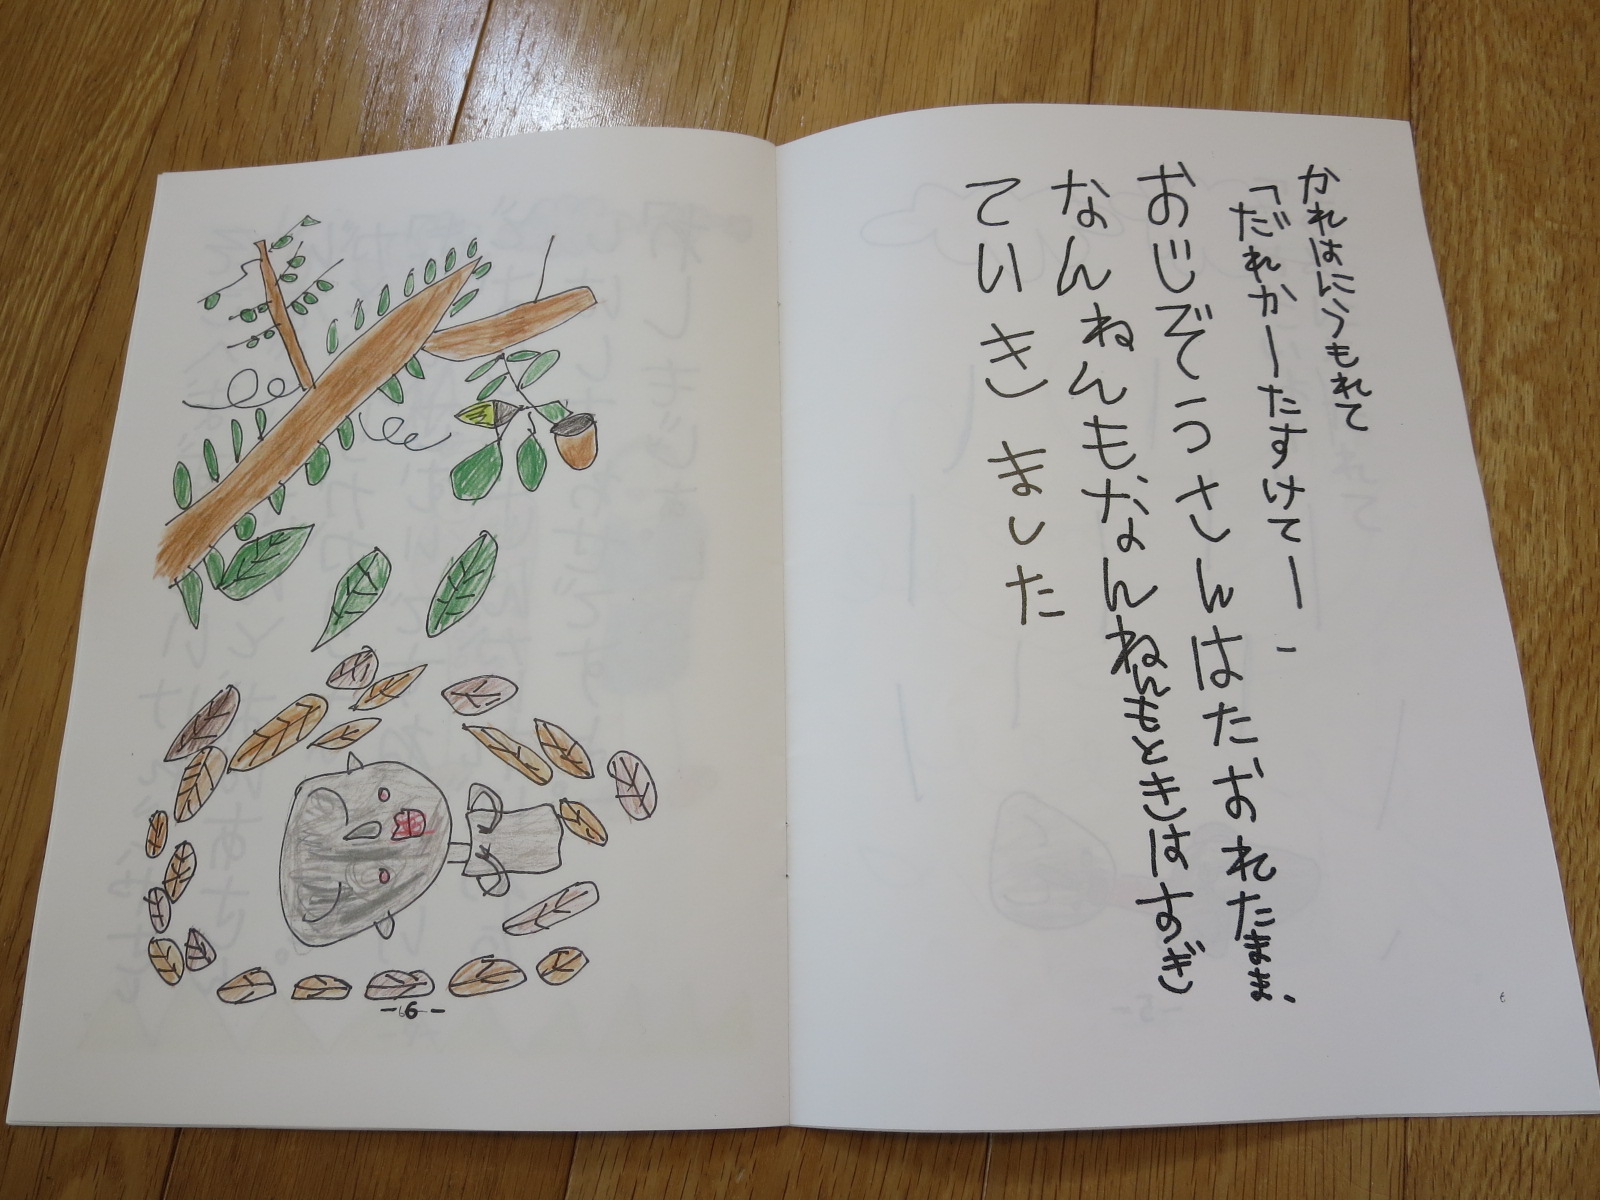 かれはにうもれて
「だれかーたすけてー
おじぞうさんはたおれたまま、
なんねんもなんねんもときはすぎ
ていきました
-6-